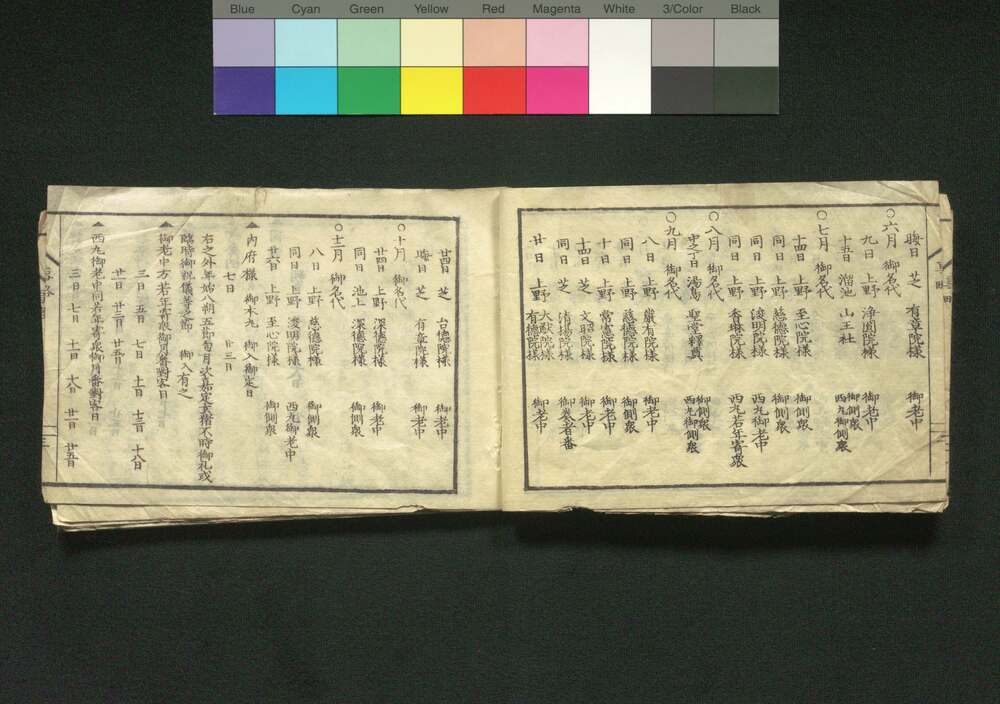 Blue Cyan Green Yellow Red Magenta White 3/Color Black
晦日 芝 有章院様 御老中
○六月 御名代
九日 上野 浄圓院様 御老中
十五日 溜池 山王社 御側衆 西丸御側衆
○七月 御名代
十四日 上野 至心院様 御側衆
同日 上野 慈徳院様 御側衆
同日 上野 浚明院様 西丸御老中
同日 上野 香琳院様 西丸若年寄衆
○八月 御名代
中之丁日 湯島 聖堂釋奠 御側衆 西丸御側衆
○九月 御名代
八日 上野 嚴有院様 御老中
同日 上野 慈徳院様 御側衆
十日 上野 常憲院様 御老中
十四日 芝 文昭院様 御老中
同日 芝 清揚院様 御奏者番
廿日 上野 大猷院様 有徳院様 御老中
廿四日 芝 台徳院様 御老中
晦日 芝 有章院様 御老中
○十月 御名代
廿四日 上野 深徳院様 御老中
同日 池上 深徳院様 御側衆
○十二月 御名代
八日 上野 慈徳院様 御側衆
同日 上野 浚明院様 西丸御老中
廿六日 上野 至心院様 御側衆
▲内府様 御本丸 御入御定日
七日 廿三日
右之外年始八朔五節句月次嘉定玄猪不時御礼或
臨時御祝儀等之節 御入有之
▲御老中方若年寄衆御月番對客日
三日 五日 七日 十一日 十三日 十八日
廿一日 廿三日 廿五日
▲西丸御老中同若年寄衆御月番對客日
三日 七日 十一日 十八日 廿一日 廿五日